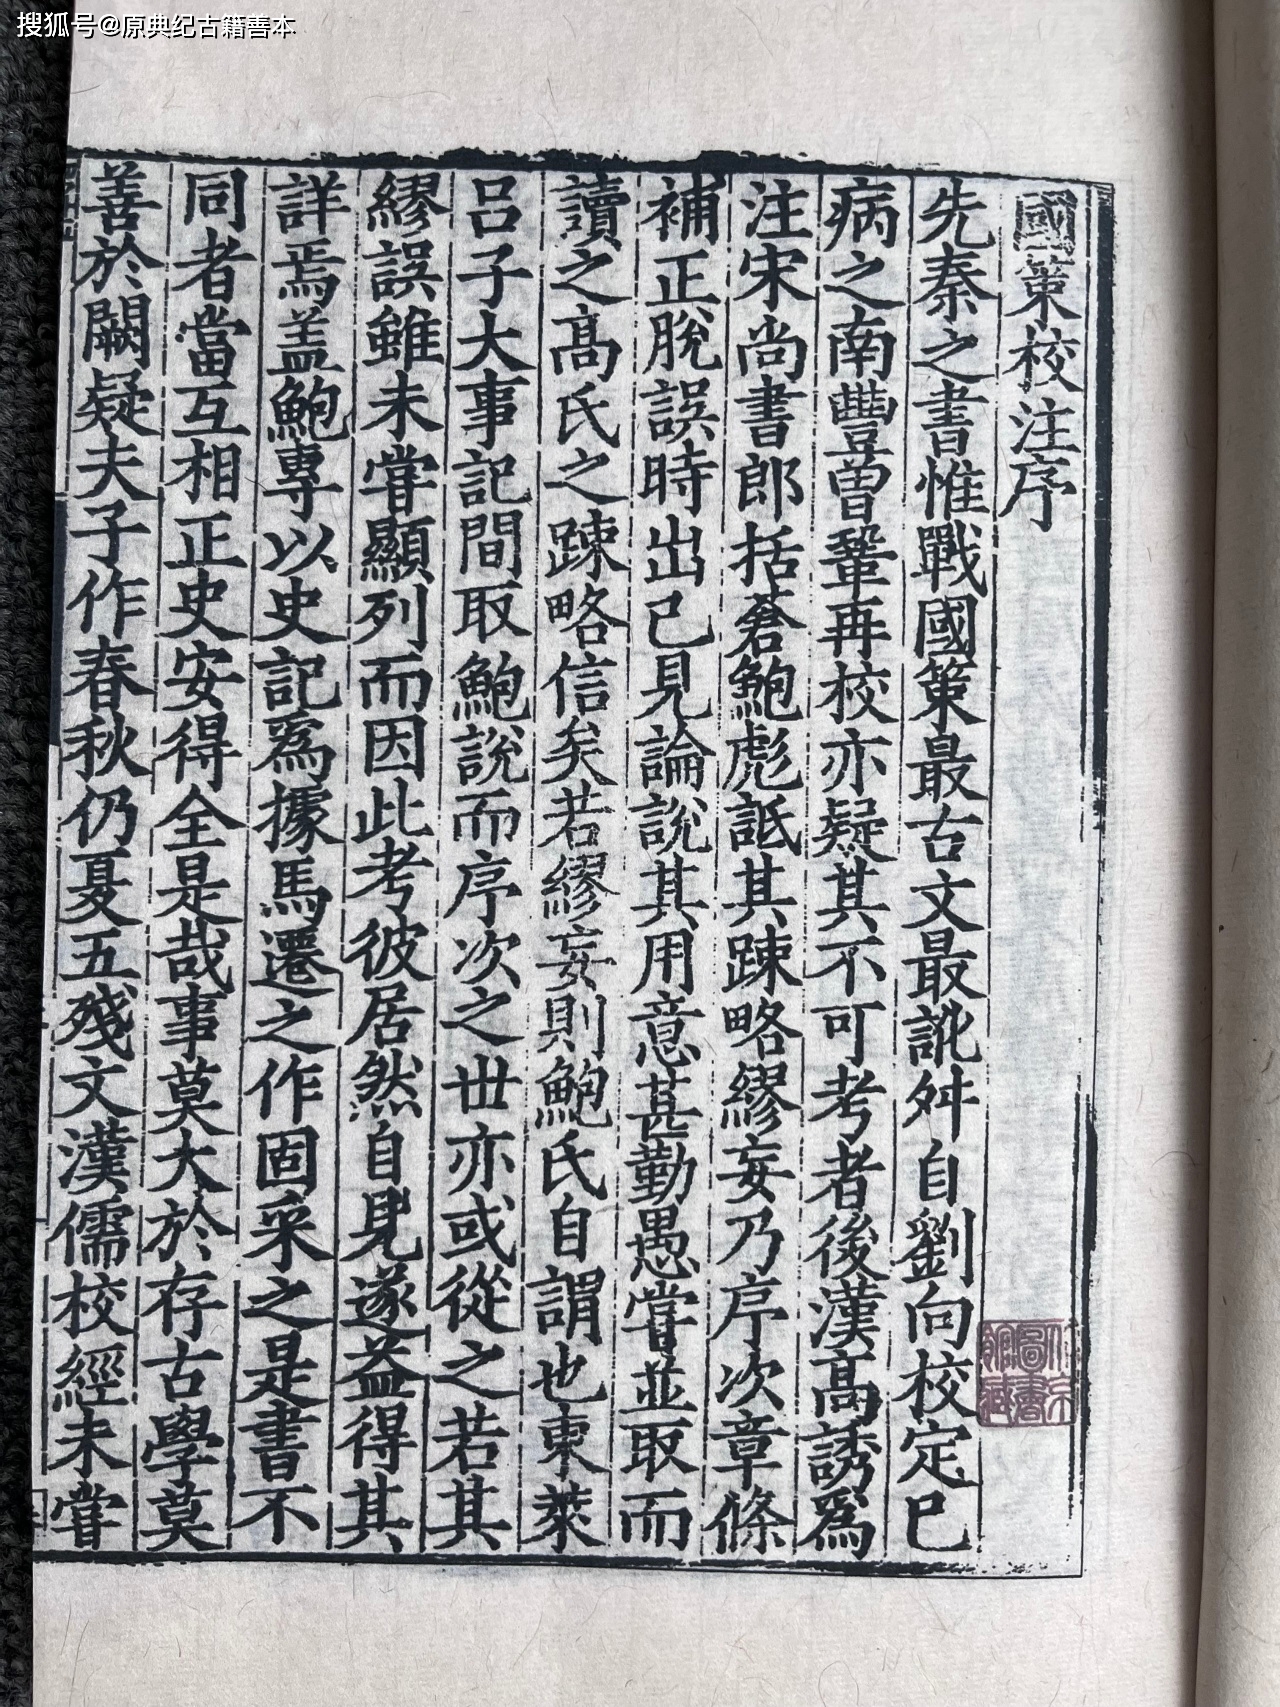 搜狐号@原典纪古籍善本
國策校注序
先秦之書惟戰國策最古文最訛舛自劉向校定已
病之南豐曾鞏再校亦疑其不可考者後漢高誘爲
注宋尚書郎括蒼鮑彪詆其踈略繆妄乃序次章條
補正脫誤時出己見論說其用意甚勤愚嘗並取而
讀之髙氏之踈略信矣若繆妄則鮑氏自謂也東萊
吕子大事記間取鮑說而序次之丗亦或從之若其
繆誤雖未甞顯列而因此考彼居然自見遂益得其
詳焉盖鮑專以史記爲據馬遷之作固采之是書不
同者當互相正史安得全是哉事莫大於存古學莫
善於闕疑夫子作春秋仍夏五殘文漢儒校經未甞
北京
圖書
館藏